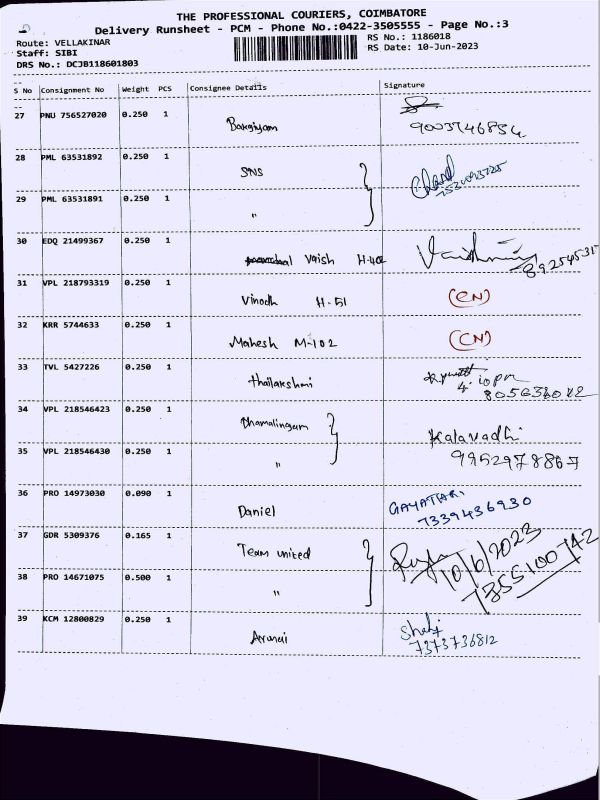 THE PROFESSIONAL COURIERS, COIMBATORE
Delivery Runsheet - PCM - Phone No.:0422-3505555 - Page No.:3
Route: VELLAKINAR RS No.: 1186018
Staff: SIBI RS Date: 10-Jun-2023
DRS No.: DCJB118601803
S No Consignment No Weight PCS Consignee Details Signature
27 PNU 756527020 0.250 1
28 PML 63531892 0.250 1 SNS
29 PML 63531891 0.250 1 "
30 EDQ 21499367 0.250 1 Vaish H-402
31 VPL 218793319 0.250 1 Vinodh H-51 (CN)
32 KRR 5744633 0.250 1 Mahesh M-102 (CN)
33 TVL 5427226 0.250 1 thailakshmi 4.10pm
34 VPL 218546423 0.250 1 Dhamalingam Kalavadhi
35 VPL 218546430 0.250 1 " 9952978867
36 PRO 14973030 0.090 1 Daniel GAYATHRI 7339436930
37 GDR 5309376 0.165 1 Team united 10/6/2023
38 PRO 14671075 0.500 1 " 7355100742
39 KCM 12800829 0.250 1 7373736812